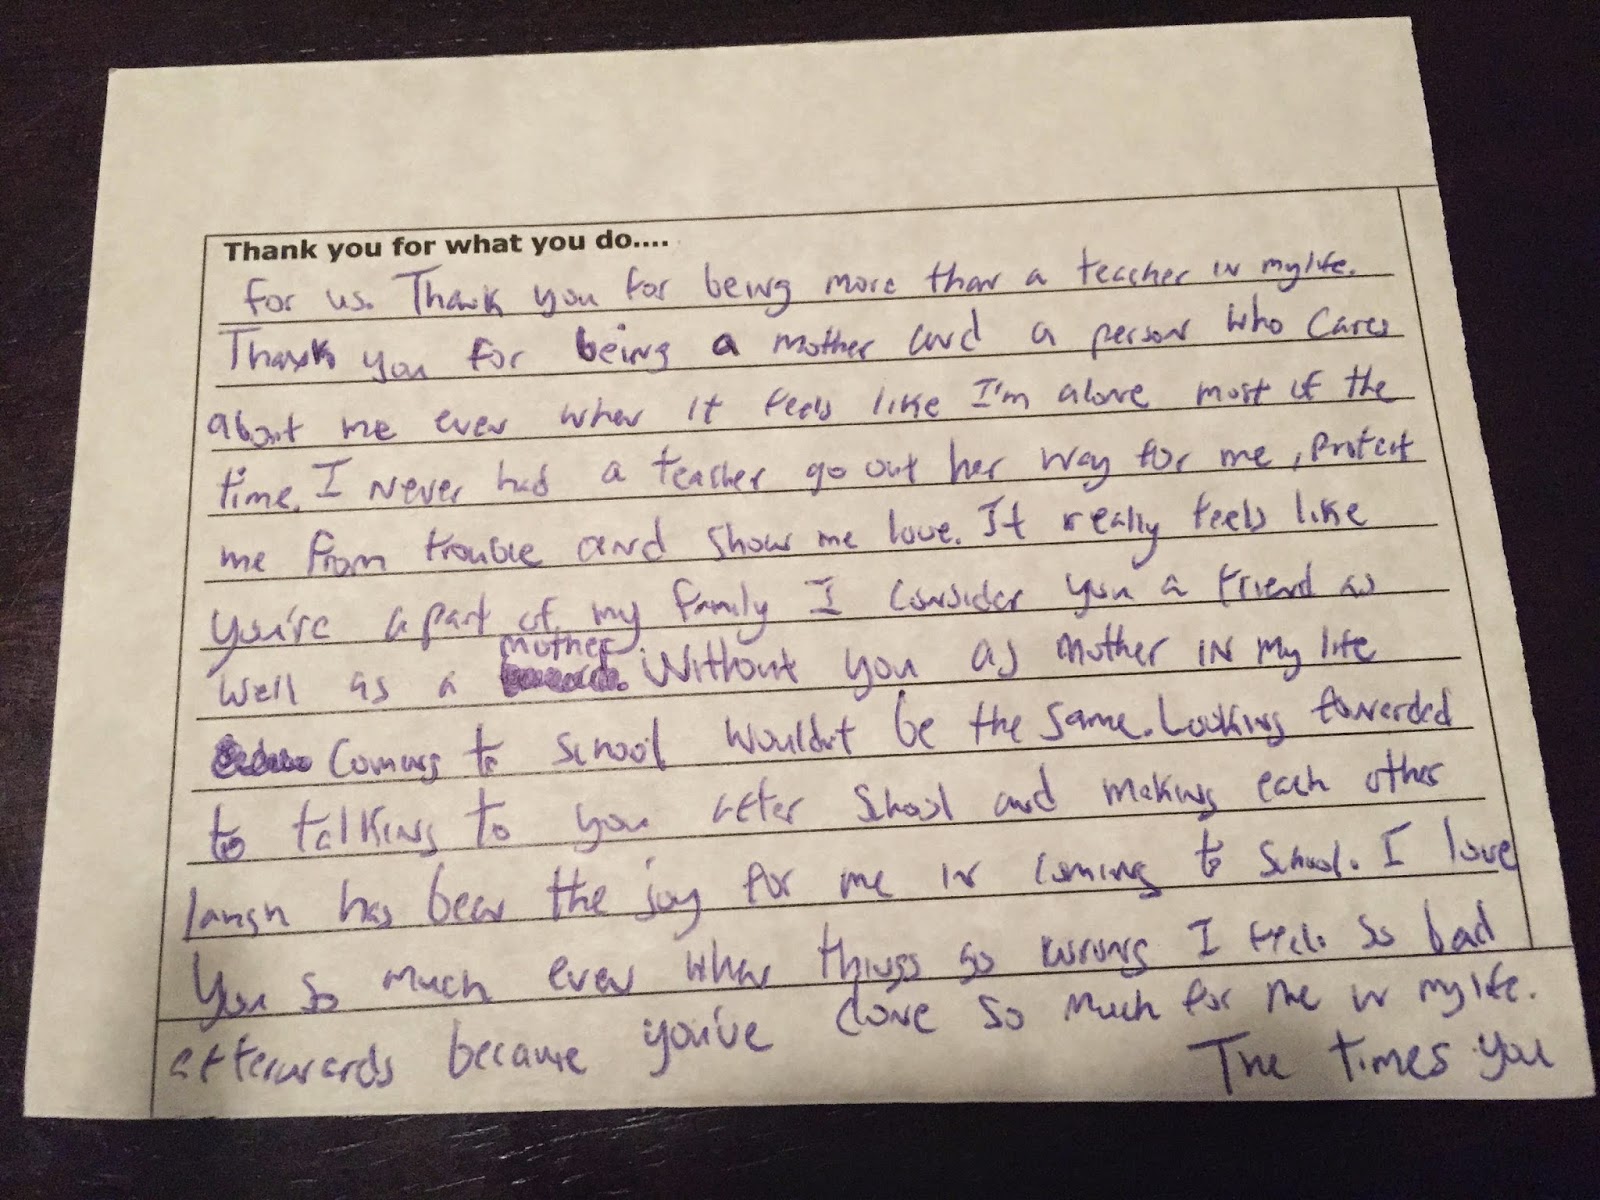 Thank you for what you do....
for us. Thank you for being more than a teacher in my life.
Thank you for being a mother and a person who cares
about me even when it feels like I'm alone most of the
time. I never had a teacher go out her way for me, protect
me from trouble and show me love. It really feels like
you're a part of my family I consider you a friend as
well as a mother. Without you as mother in my life
coming to school wouldn't be the same. Looking fowarded
to talking to you after school and making each other
laugh has been the joy for me in coming to school. I love
you so much even when things go wrong I feel so bad
afterwards because you've done so much for me in my life.
The times you